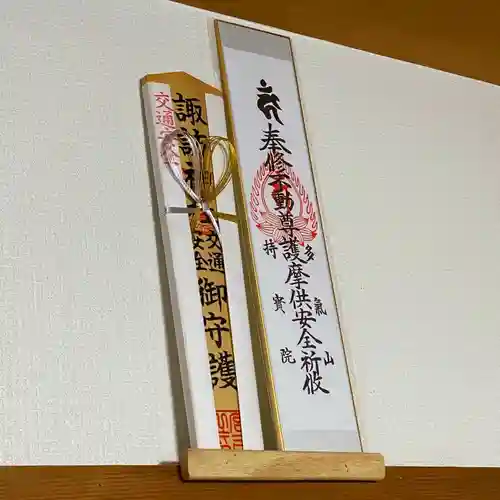 交通安全
諏訪神社
交通
安全
御守護
奉修不動尊護摩供安全祈攸
多氣山
持寳院